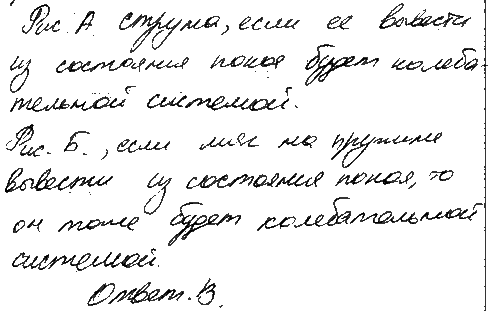 Рис. А струна, если ее вывести
из состояния покоя будет колеба-
тельной системой.
Рис. Б., если мяч на пружине
вывести из состояния покоя, то
он тоже будет колебательной
системой.
Ответ. В.